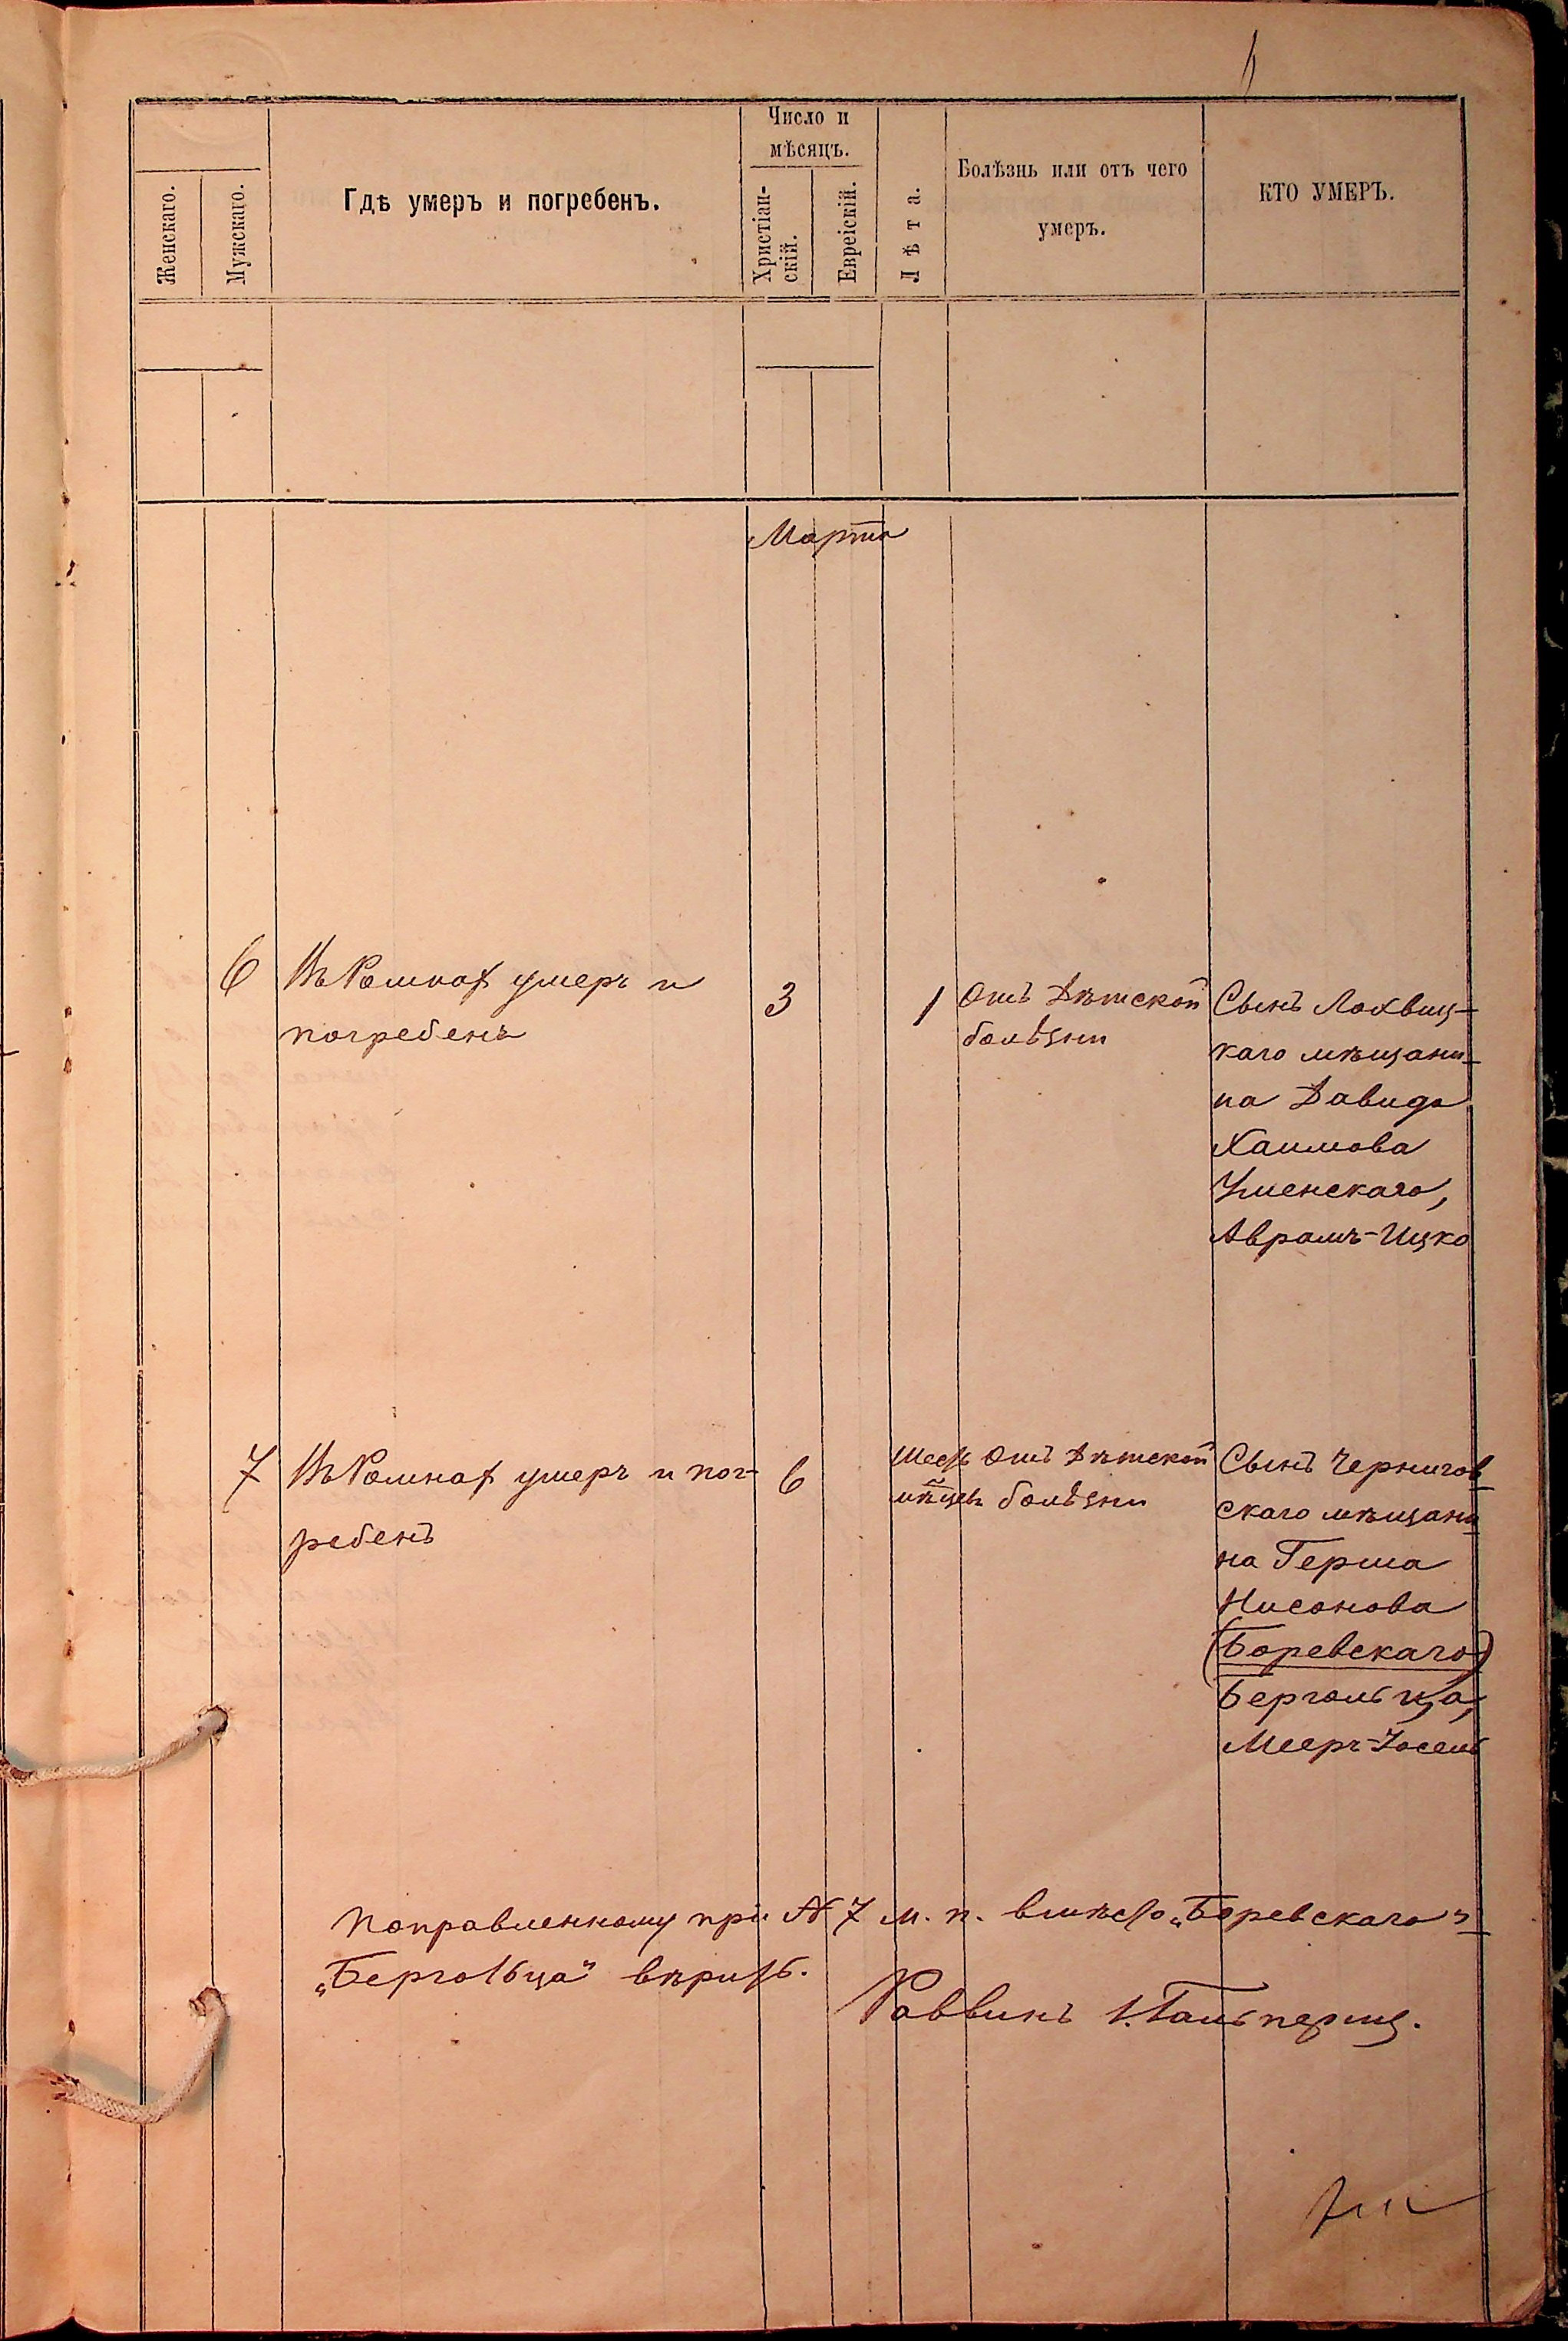 Число и
мѣсяцъ.
Женскаго.
Мужскаго.
Гдѣ умеръ и погребенъ.
Христіан-
скій.
Евреіскій.
Лѣта.
Болѣзнь или отъ чего
умеръ.
КТО УМЕРЪ.
Марта
6
Въ Ромнах умеръ и
погребенъ
3
1
Отъ Дѣтской
болѣзни
Сынъ Лохвиц-
каго мѣщани-
на Давида
Хаимова
Уменскаго,
Аврамъ-Ицко
7
Въ Ромнах умеръ и пог-
ребенъ
6
Шесть
мѣцевъ
Отъ Дѣтской
болѣзни
Сынъ Чернигов-
скаго мѣщани-
на Герша
Нисонова
(Боревскаго)
Бергольца,
Мееръ-Іосель
Поправленному при № 7 м. п. вмѣсто „Боревскаго"
„Бергольца" вѣрить.
Раввинъ І. Гальперинъ.